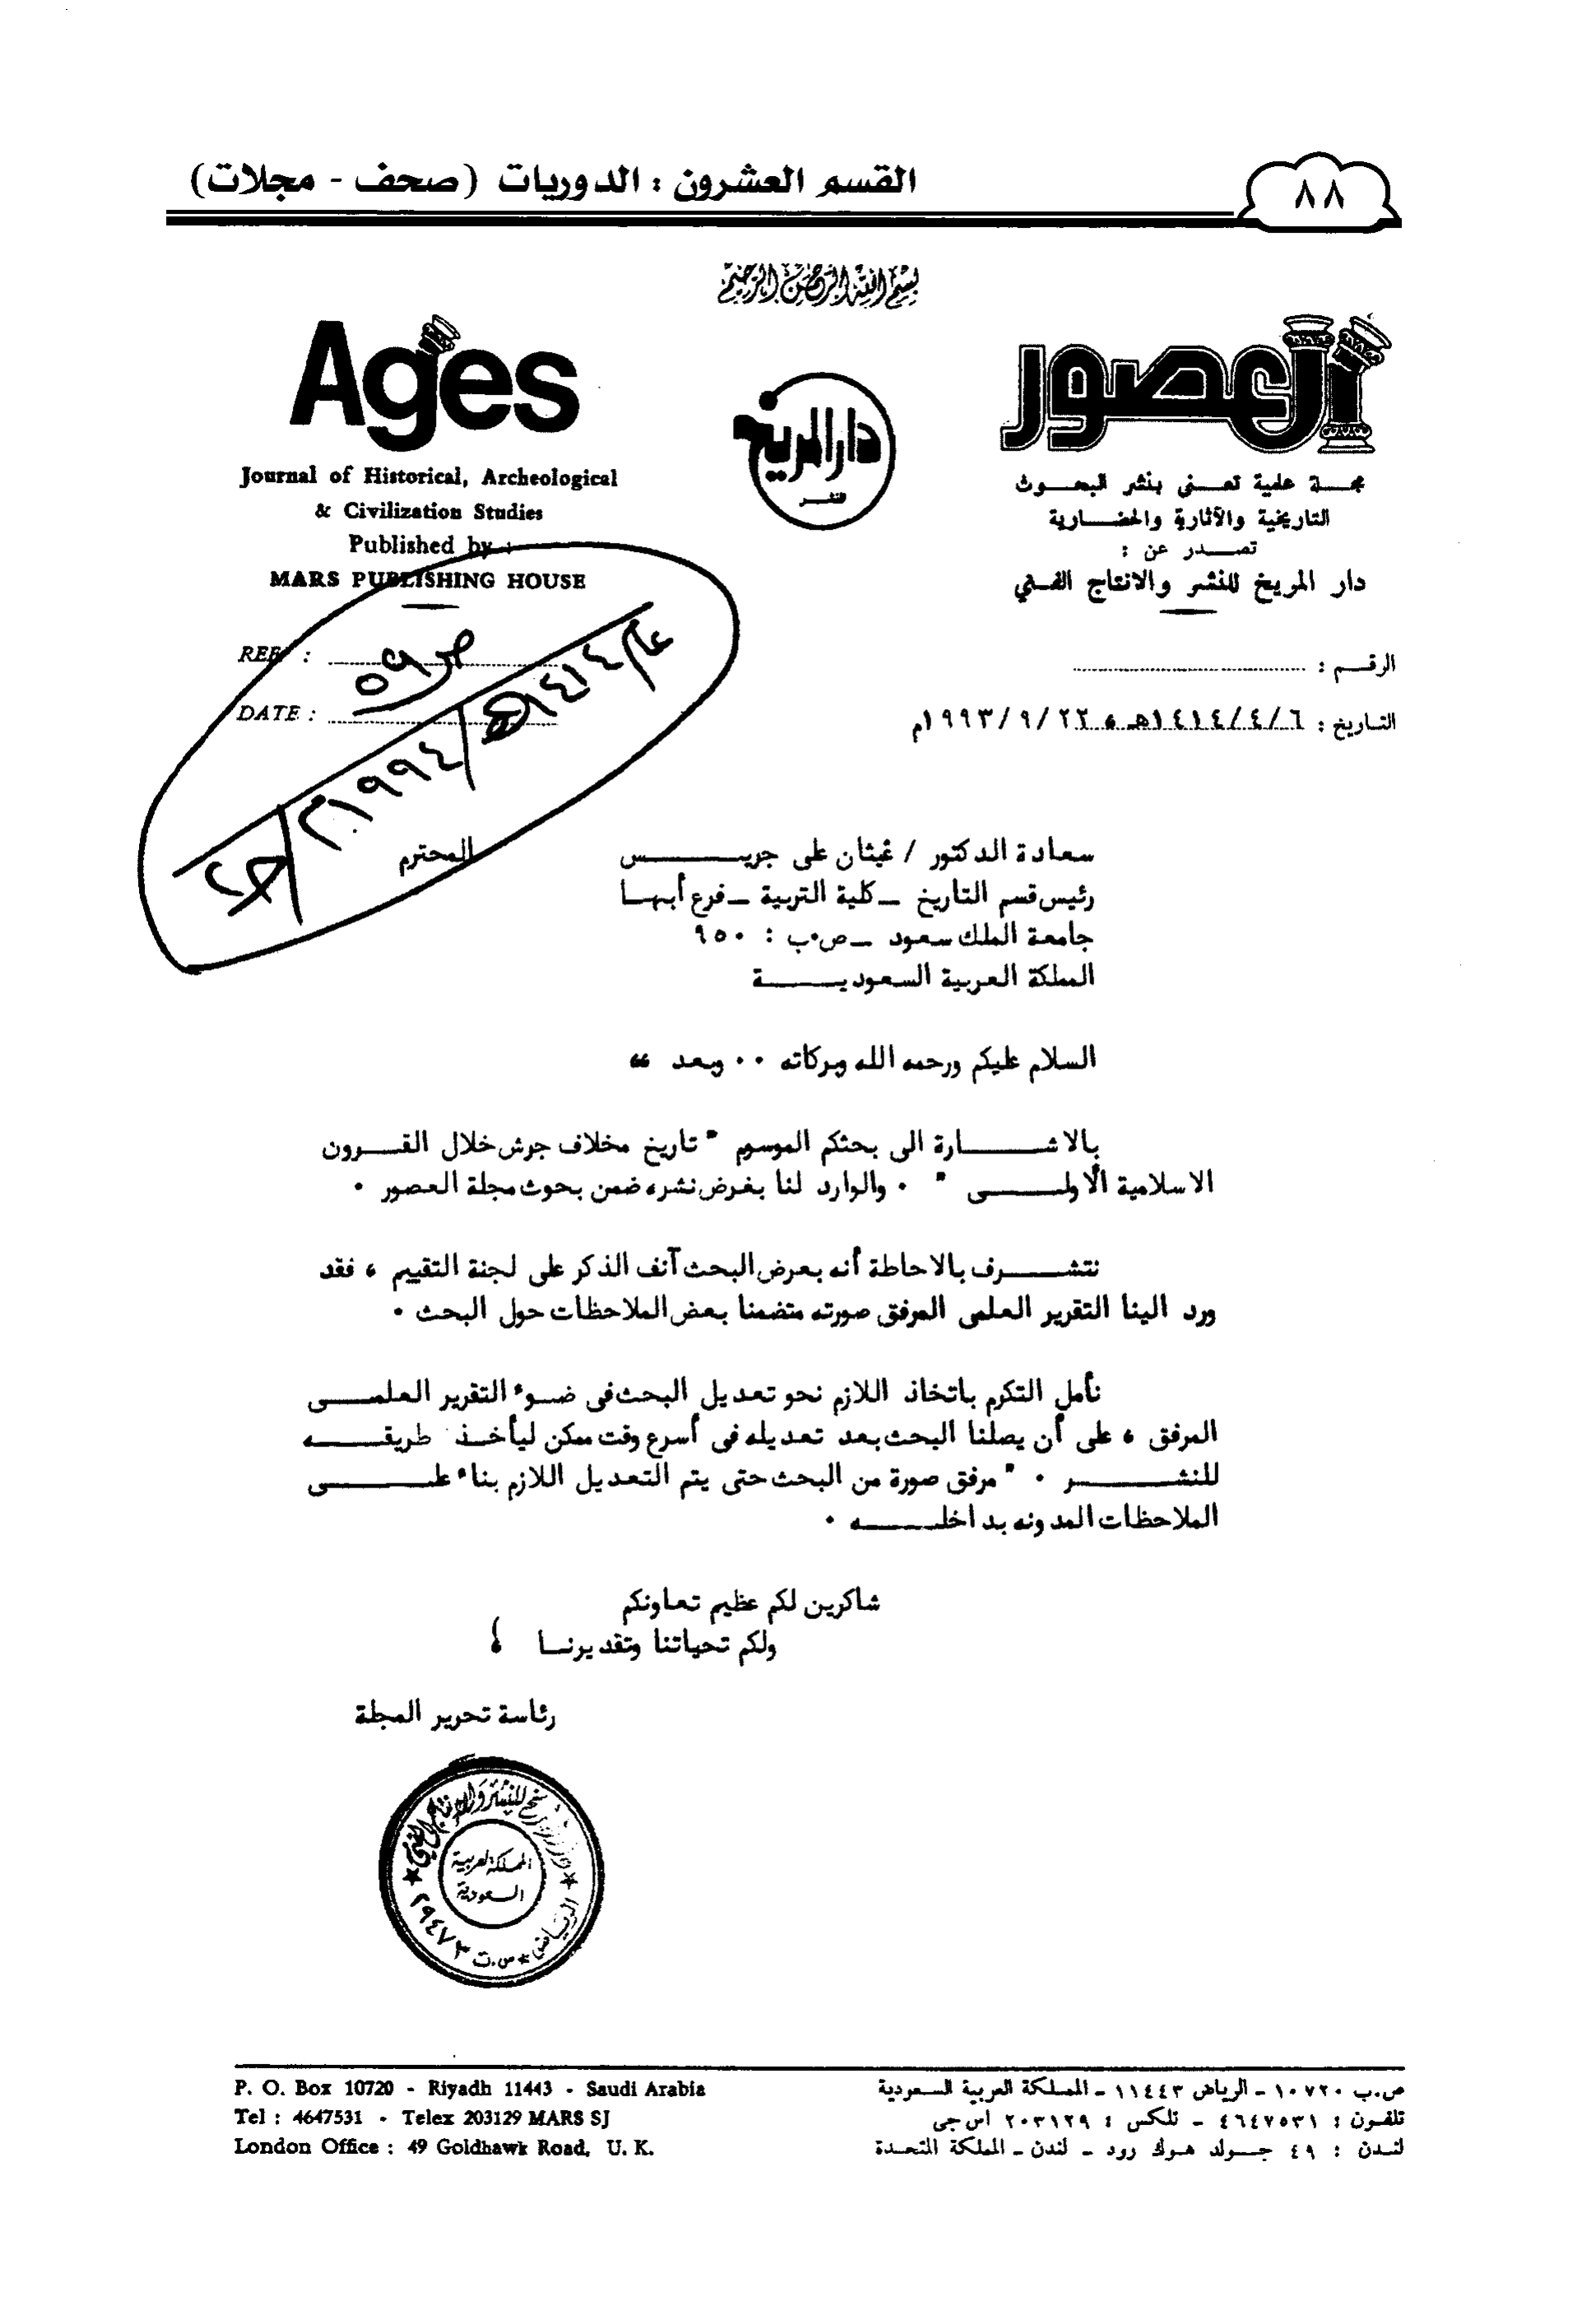 القسم العشرون : الدوريات (صحف - مجلات)
٨٨
بسم الله الرحمن الرحيم
Ages
Journal of Historical, Archeological
& Civilization Studies
Published by :
MARS PUBLISHING HOUSE
REF :
DATE :
دار المريخ
للنشر
العصور
مجلة علمية تعنى بنشر البحوث
التاريخية والآثارية والحضارية
تصدر عن :
دار المريخ للنشر والانتاج الفني
الرقم :
التاريخ : ١٤١٤/٤/٦هـ ، ١٩٩٣/٩/٢٢م
ص ٥٩
١٤١٤هـ / ١٩٩٤م
سعادة الدكتور / غيثان على جريس المحترم
رئيس قسم التاريخ - كلية التربية - فرع أبها
جامعة الملك سعود - ص٠ب : ٩٥٠
المملكة العربية السعودية
السلام عليكم ورحمه الله وبركاته ٠٠ وبعد ،،
بالاشارة الى بحثكم الموسوم " تاريخ مخلاف جرش خلال القرون
الاسلامية الأولى " ٠ والوارد لنا بغرض نشره ضمن بحوث مجلة العصور ٠
نتشرف بالاحاطة أنه بعرض البحث آنف الذكر على لجنة التقييم ، فقد
ورد الينا التقرير العلمى المرفق صورته متضمنا بعض الملاحظات حول البحث ٠
نأمل التكرم باتخاذ اللازم نحو تعديل البحث فى ضوء التقرير العلمى
المرفق ، على أن يصلنا البحث بعد تعديله فى أسرع وقت ممكن ليأخذ طريقه
للنشر ٠ " مرفق صورة من البحث حتى يتم التعديل اللازم بناء على
الملاحظات المدونه بداخله ٠
شاكرين لكم عظيم تعاونكم
ولكم تحياتنا وتقديرنا
رئاسة تحرير المجلة
المملكة العربية
السعودية
الرياض
س.ت ٢٩٤٧٣
P. O. Box 10720 - Riyadh 11443 - Saudi Arabia
Tel : 4647531 - Telex 203129 MARS SJ
London Office : 49 Goldhawk Road, U. K.
ص.ب ١٠٧٢٠ - الرياض ١١٤٤٣ - المملكة العربية السعودية
تلفون : ٤٦٤٧٥٣١ - تلكس : ٢٠٣١٢٩ اس جى
لندن : ٤٩ جولد هوك رود - لندن - المملكة المتحدة